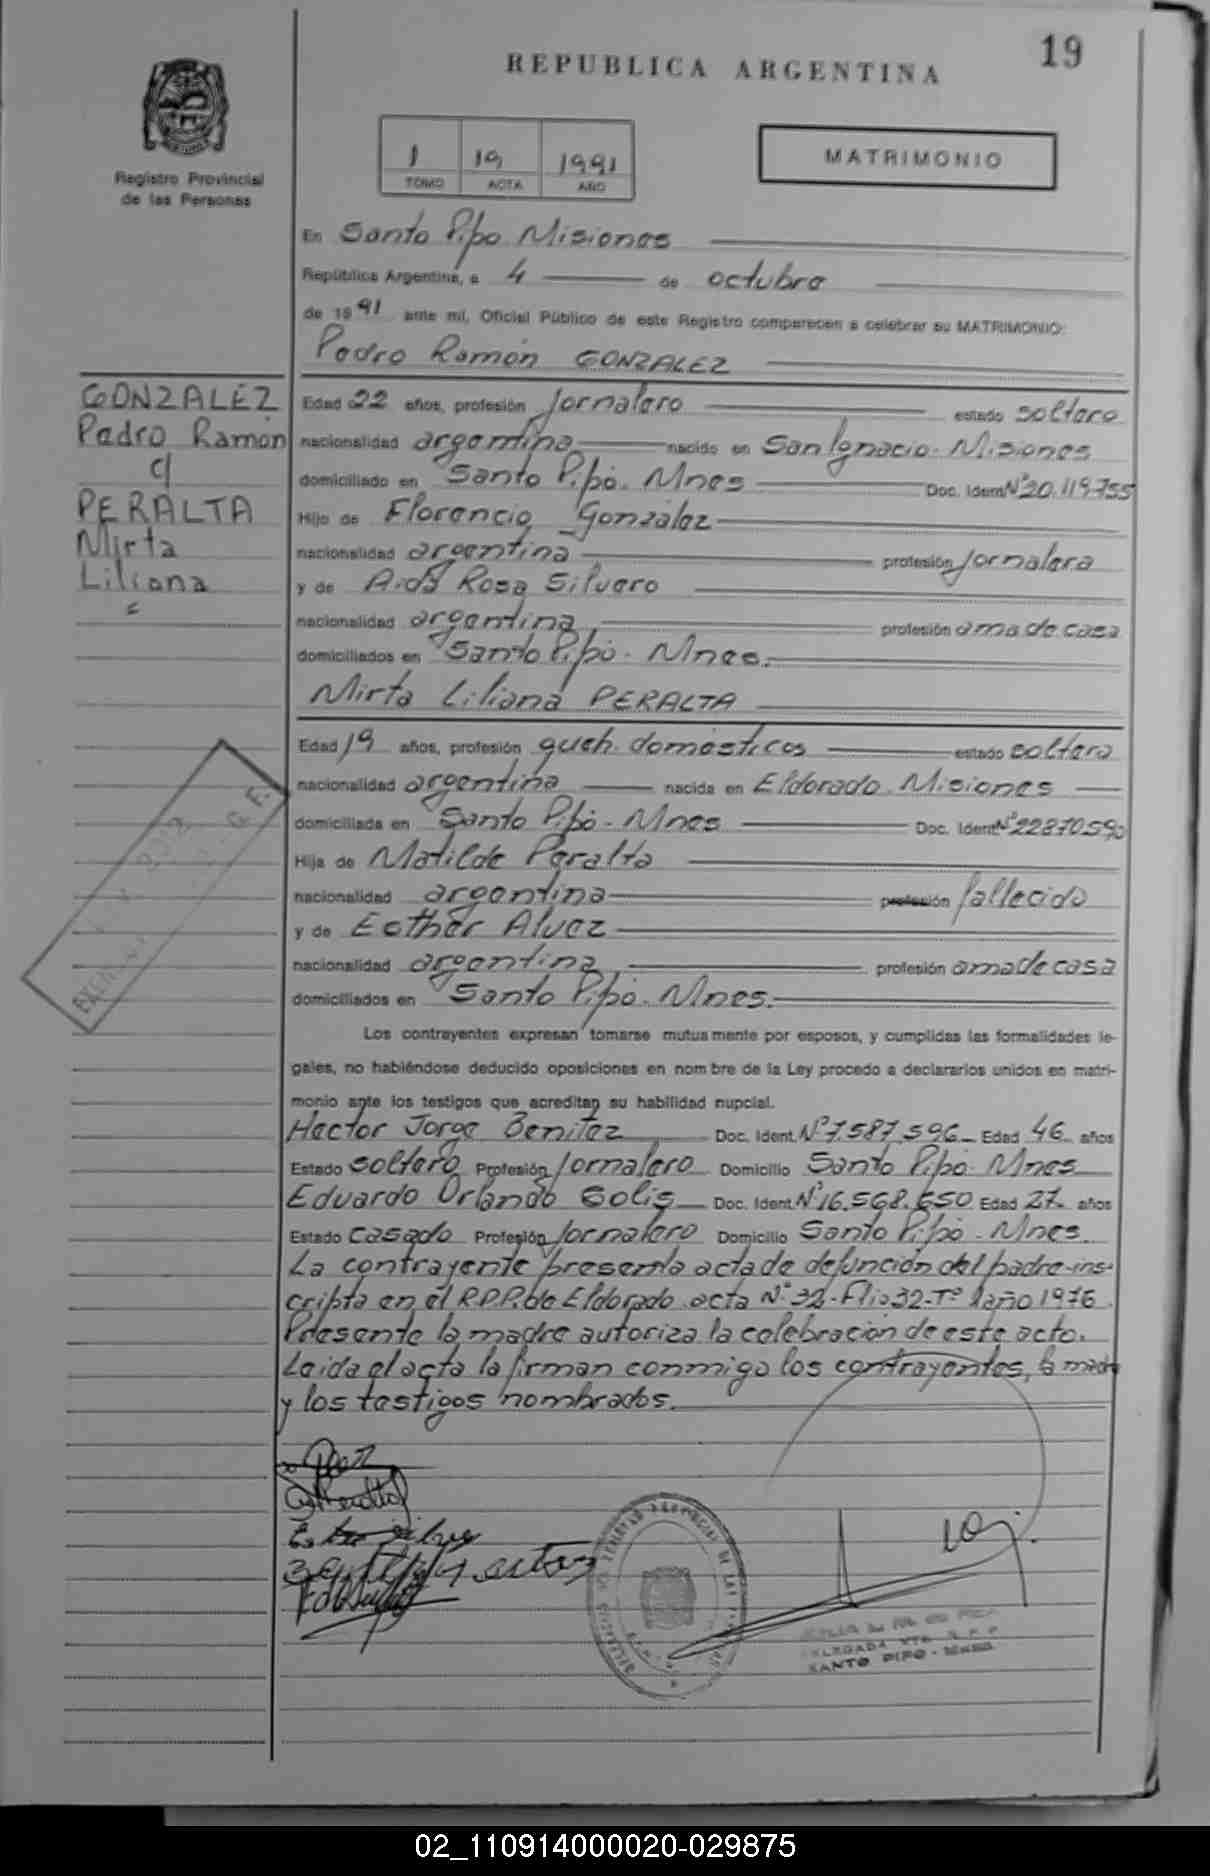 19
REPUBLICA ARGENTINA
Registro Provincial
de las Personas
1 19 1991
TOMO ACTA AÑO
MATRIMONIO
En Santo Pipo Misiones
República Argentina, a 4 de octubre
de 1991 ante mí, Oficial Público de este Registro comparecen a celebrar su MATRIMONIO:
Pedro Ramón GONZALEZ
GONZALEZ
Pedro Ramón
c/
PERALTA
Mirta
Liliana
Edad 22 años, profesión Jornalero estado soltero
nacionalidad argentina nacido en San Ignacio - Misiones
domiciliado en Santo Pipó - Mnes Doc. Ident Nº 20.119.755
Hijo de Florencio González
nacionalidad argentina profesión Jornalera
y de Aida Rosa Silvero
nacionalidad argentina profesión ama de casa
domiciliados en Santo Pipó - Mnes.
Mirta Liliana PERALTA
Edad 19 años, profesión queh. domésticos estado soltera
nacionalidad argentina nacida en Eldorado - Misiones
domiciliada en Santo Pipó - Mnes Doc. Ident Nº 22870590
Hija de Matilde Peralta
nacionalidad argentina profesión fallecido
y de Esther Alvez
nacionalidad argentina profesión ama de casa
domiciliados en Santo Pipó - Mnes.
Los contrayentes expresan tomarse mutuamente por esposos, y cumplidas las formalidades le-
gales, no habiéndose deducido oposiciones en nombre de la Ley procedo a declararlos unidos en matri-
monio ante los testigos que acreditan su habilidad nupcial.
Hector Jorge Benitez Doc. Ident. Nº 7.587.596 Edad 46 años
Estado soltero Profesión Jornalero Domicilio Santo Pipó Mnes
Eduardo Orlando Solis Doc. Ident. Nº 16.568.650 Edad 27 años
Estado casado Profesión Jornalero Domicilio Santo Pipó - Mnes
La contrayente presenta acta de defunción del padre ins-
cripta en el R.P.P. de Eldorado acta Nº 32 - Flio 32 - Tº 1 año 1976
Presente la madre autoriza la celebración de este acto.
Leida el acta la firman conmigo los contrayentes, la madre
y los testigos nombrados.
DELEGADA
SANTO PIPO - MNES
02_110914000020-029875